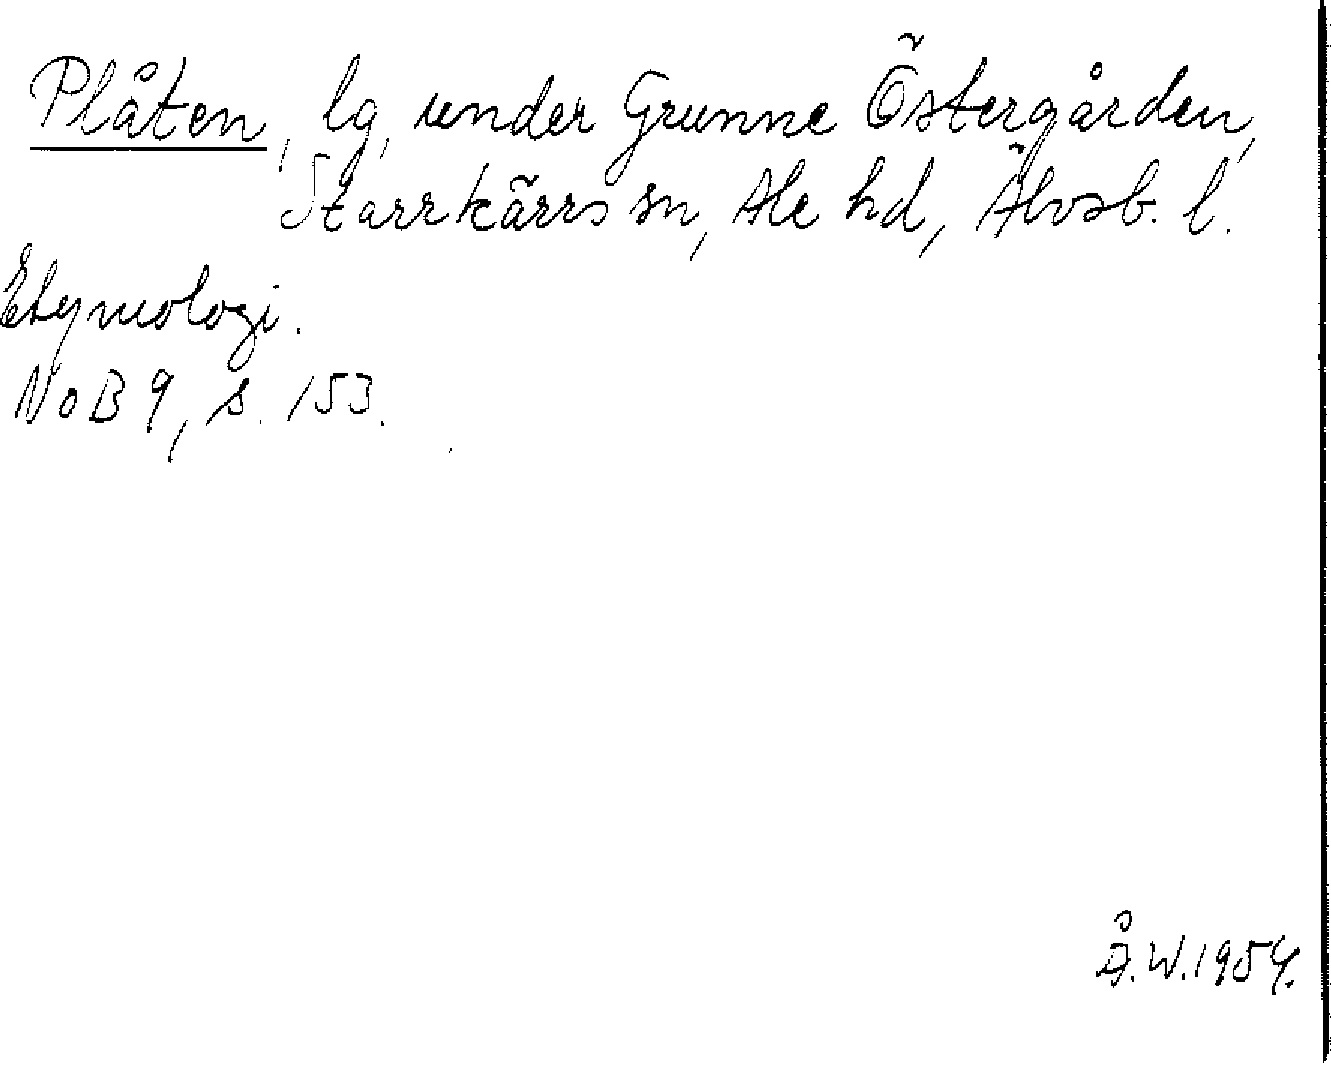 Plåten, lg, under Grunne Östergården,
Starrkärrs sn, Ale hd, Älvsb. l.
Etymologi.
NoB 9, s. 153.
Å.W. 1954.